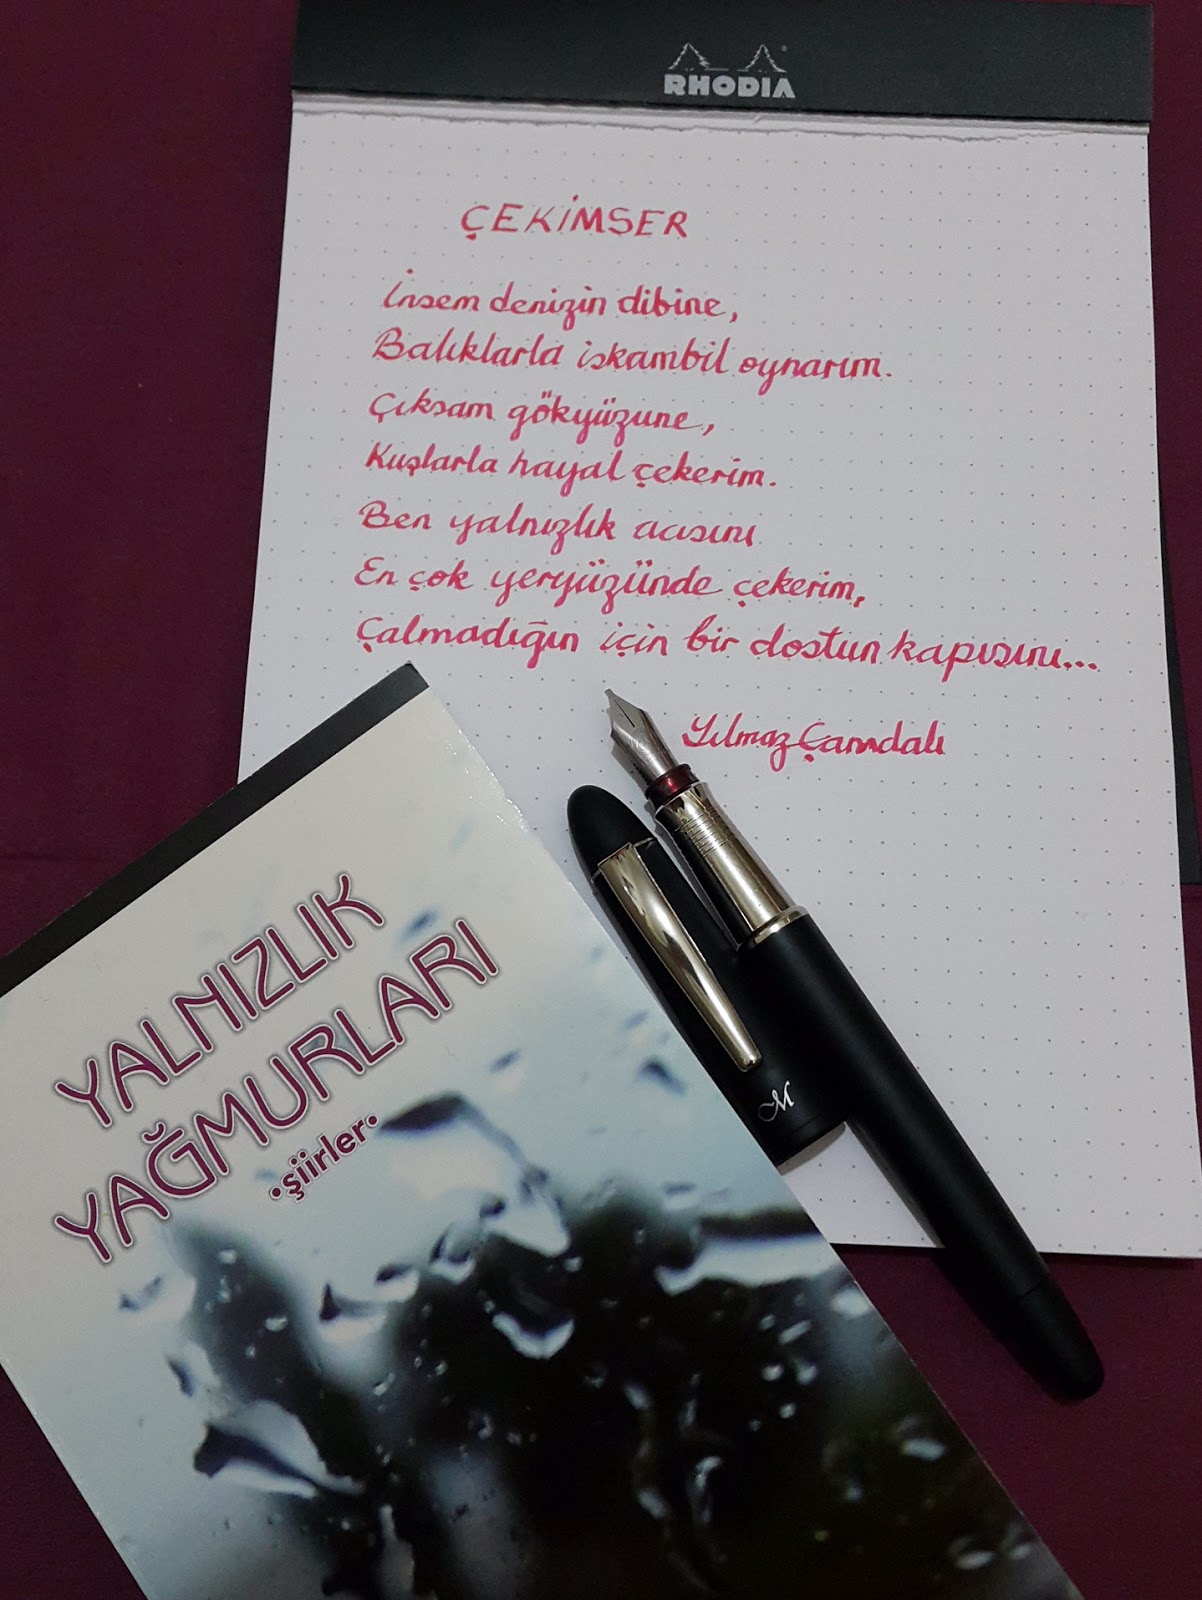 RHODIA
ÇEKİMSER
İnsem denizin dibine,
Balıklarla iskambil oynarım.
Çıksam gökyüzüne,
Kuşlarla hayal çekerim.
Ben yalnızlık acısını
En çok yeryüzünde çekerim,
Çalmadığın için bir dostun kapısını...
Yılmaz Çamdalı
YALNIZLIK
YAĞMURLARI
•şiirler•
M